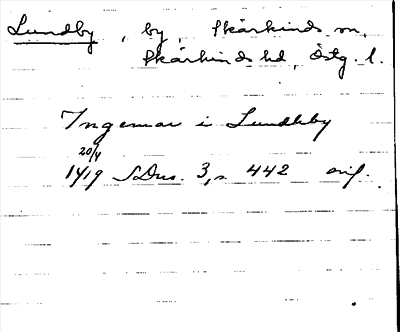 Lundby, by, Skärkinds sn,
Skärkinds hd, Östg. l.
Ingemar i Lundhby
20/4
1419 SDns. 3, s. 442 orig.